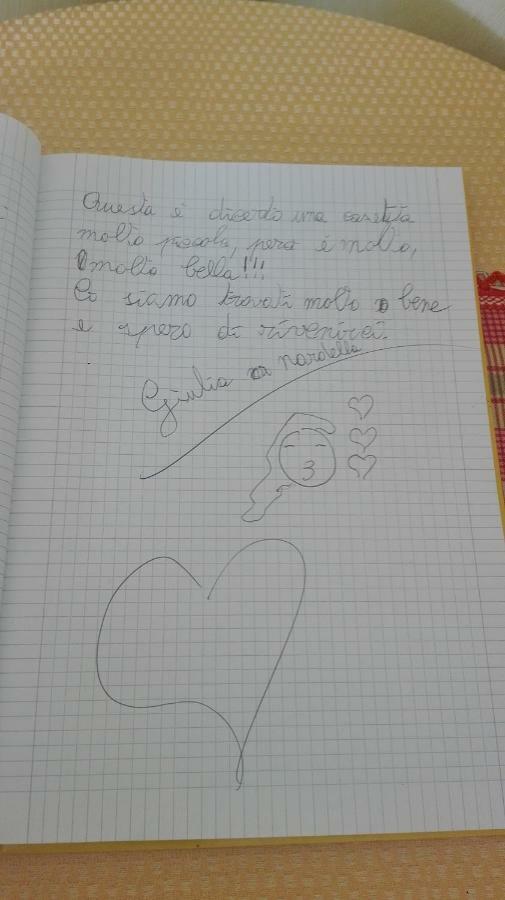 Questa è dicerto una casetta
molto piccola, però é molto,
molto bella!!!
Ci siamo trovati molto bene
e spero di rivenirci.
Giulia Nardella